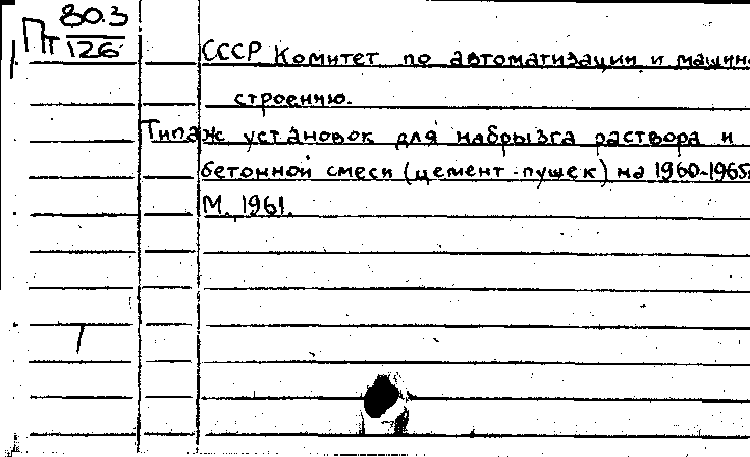 Пт 80.3
126
СССР Комитет по автоматизации и машино-
строению.
Типаж установок для набрызга раствора и
бетонной смеси (цемент-пушек) на 1960-1965
М. 1961.
1